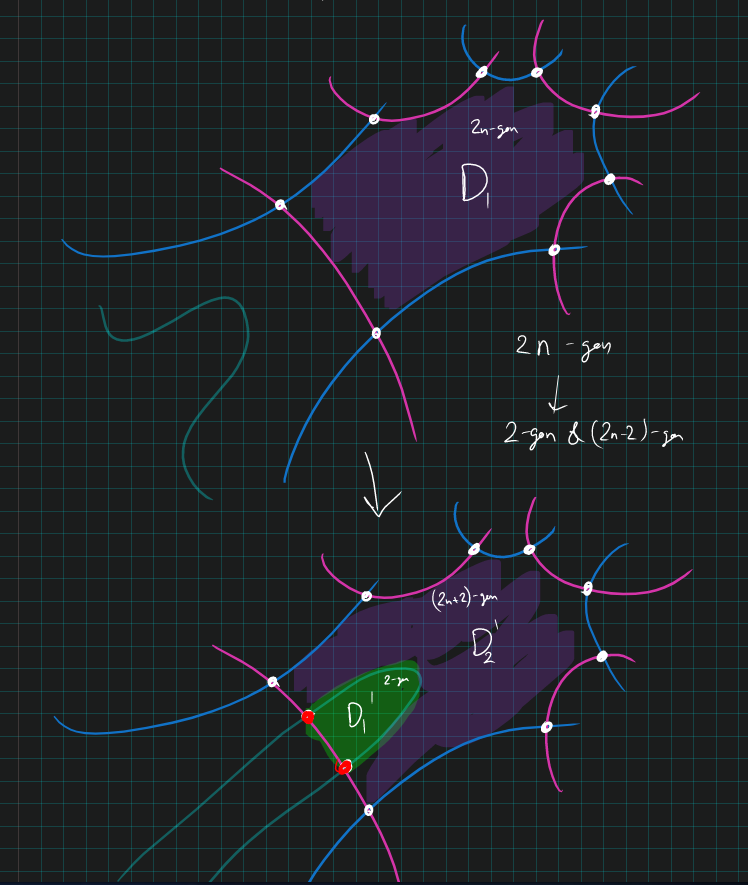 2n-gon
D₁
2n-gon
↓
2-gon & (2n-2)-gon
(2n+2)-gon
D₂'
2-gon
D₁'